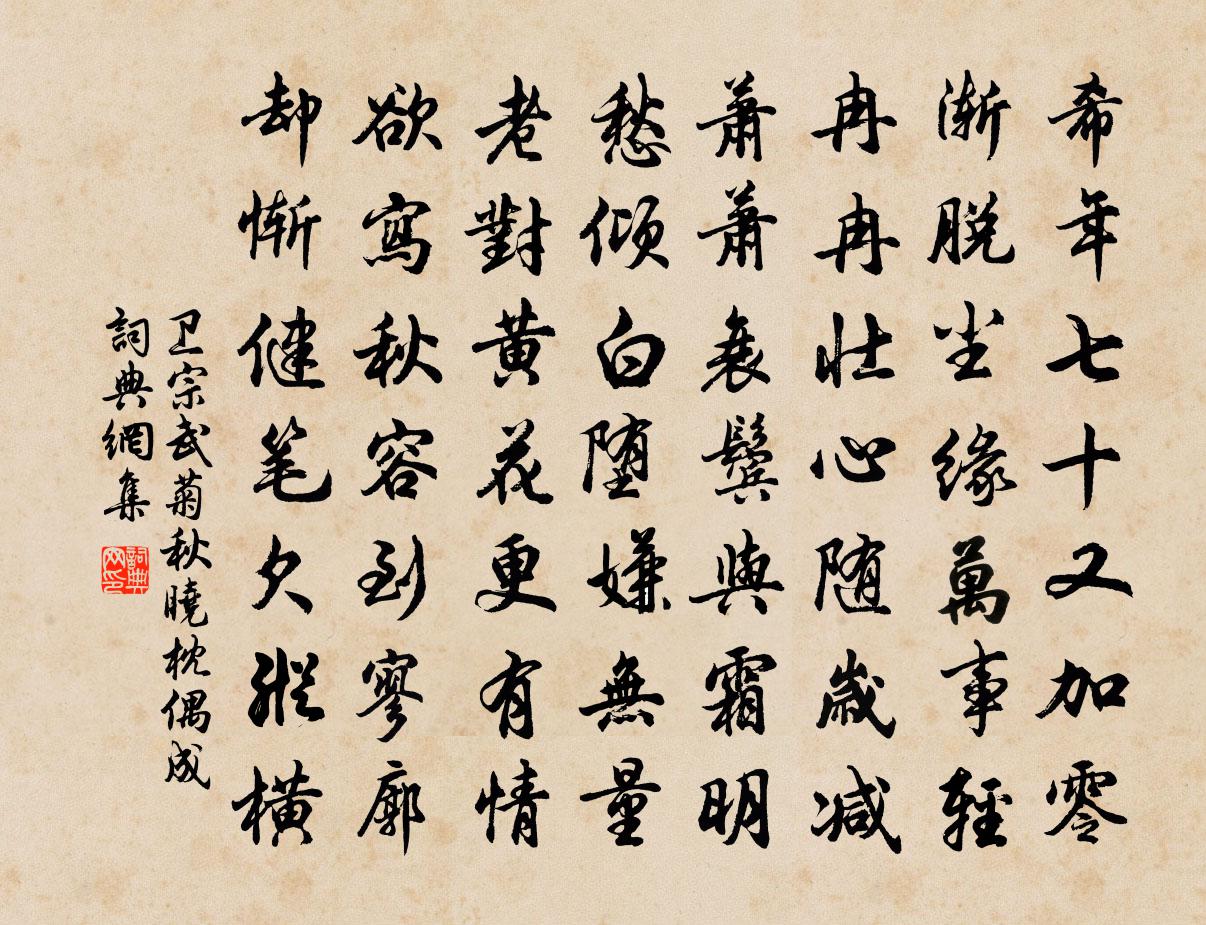 希年七十又加零
漸脫尘緣萬事輕
冉冉壮心随歲減
蕭蕭衰鬢與霜明
愁傾白堕嫌無量
老對黄花更有情
欲寫秋容到寥廓
却慚健笔欠縱橫
卫宗武菊秋曉枕偶成
詞典網集
詞典网印